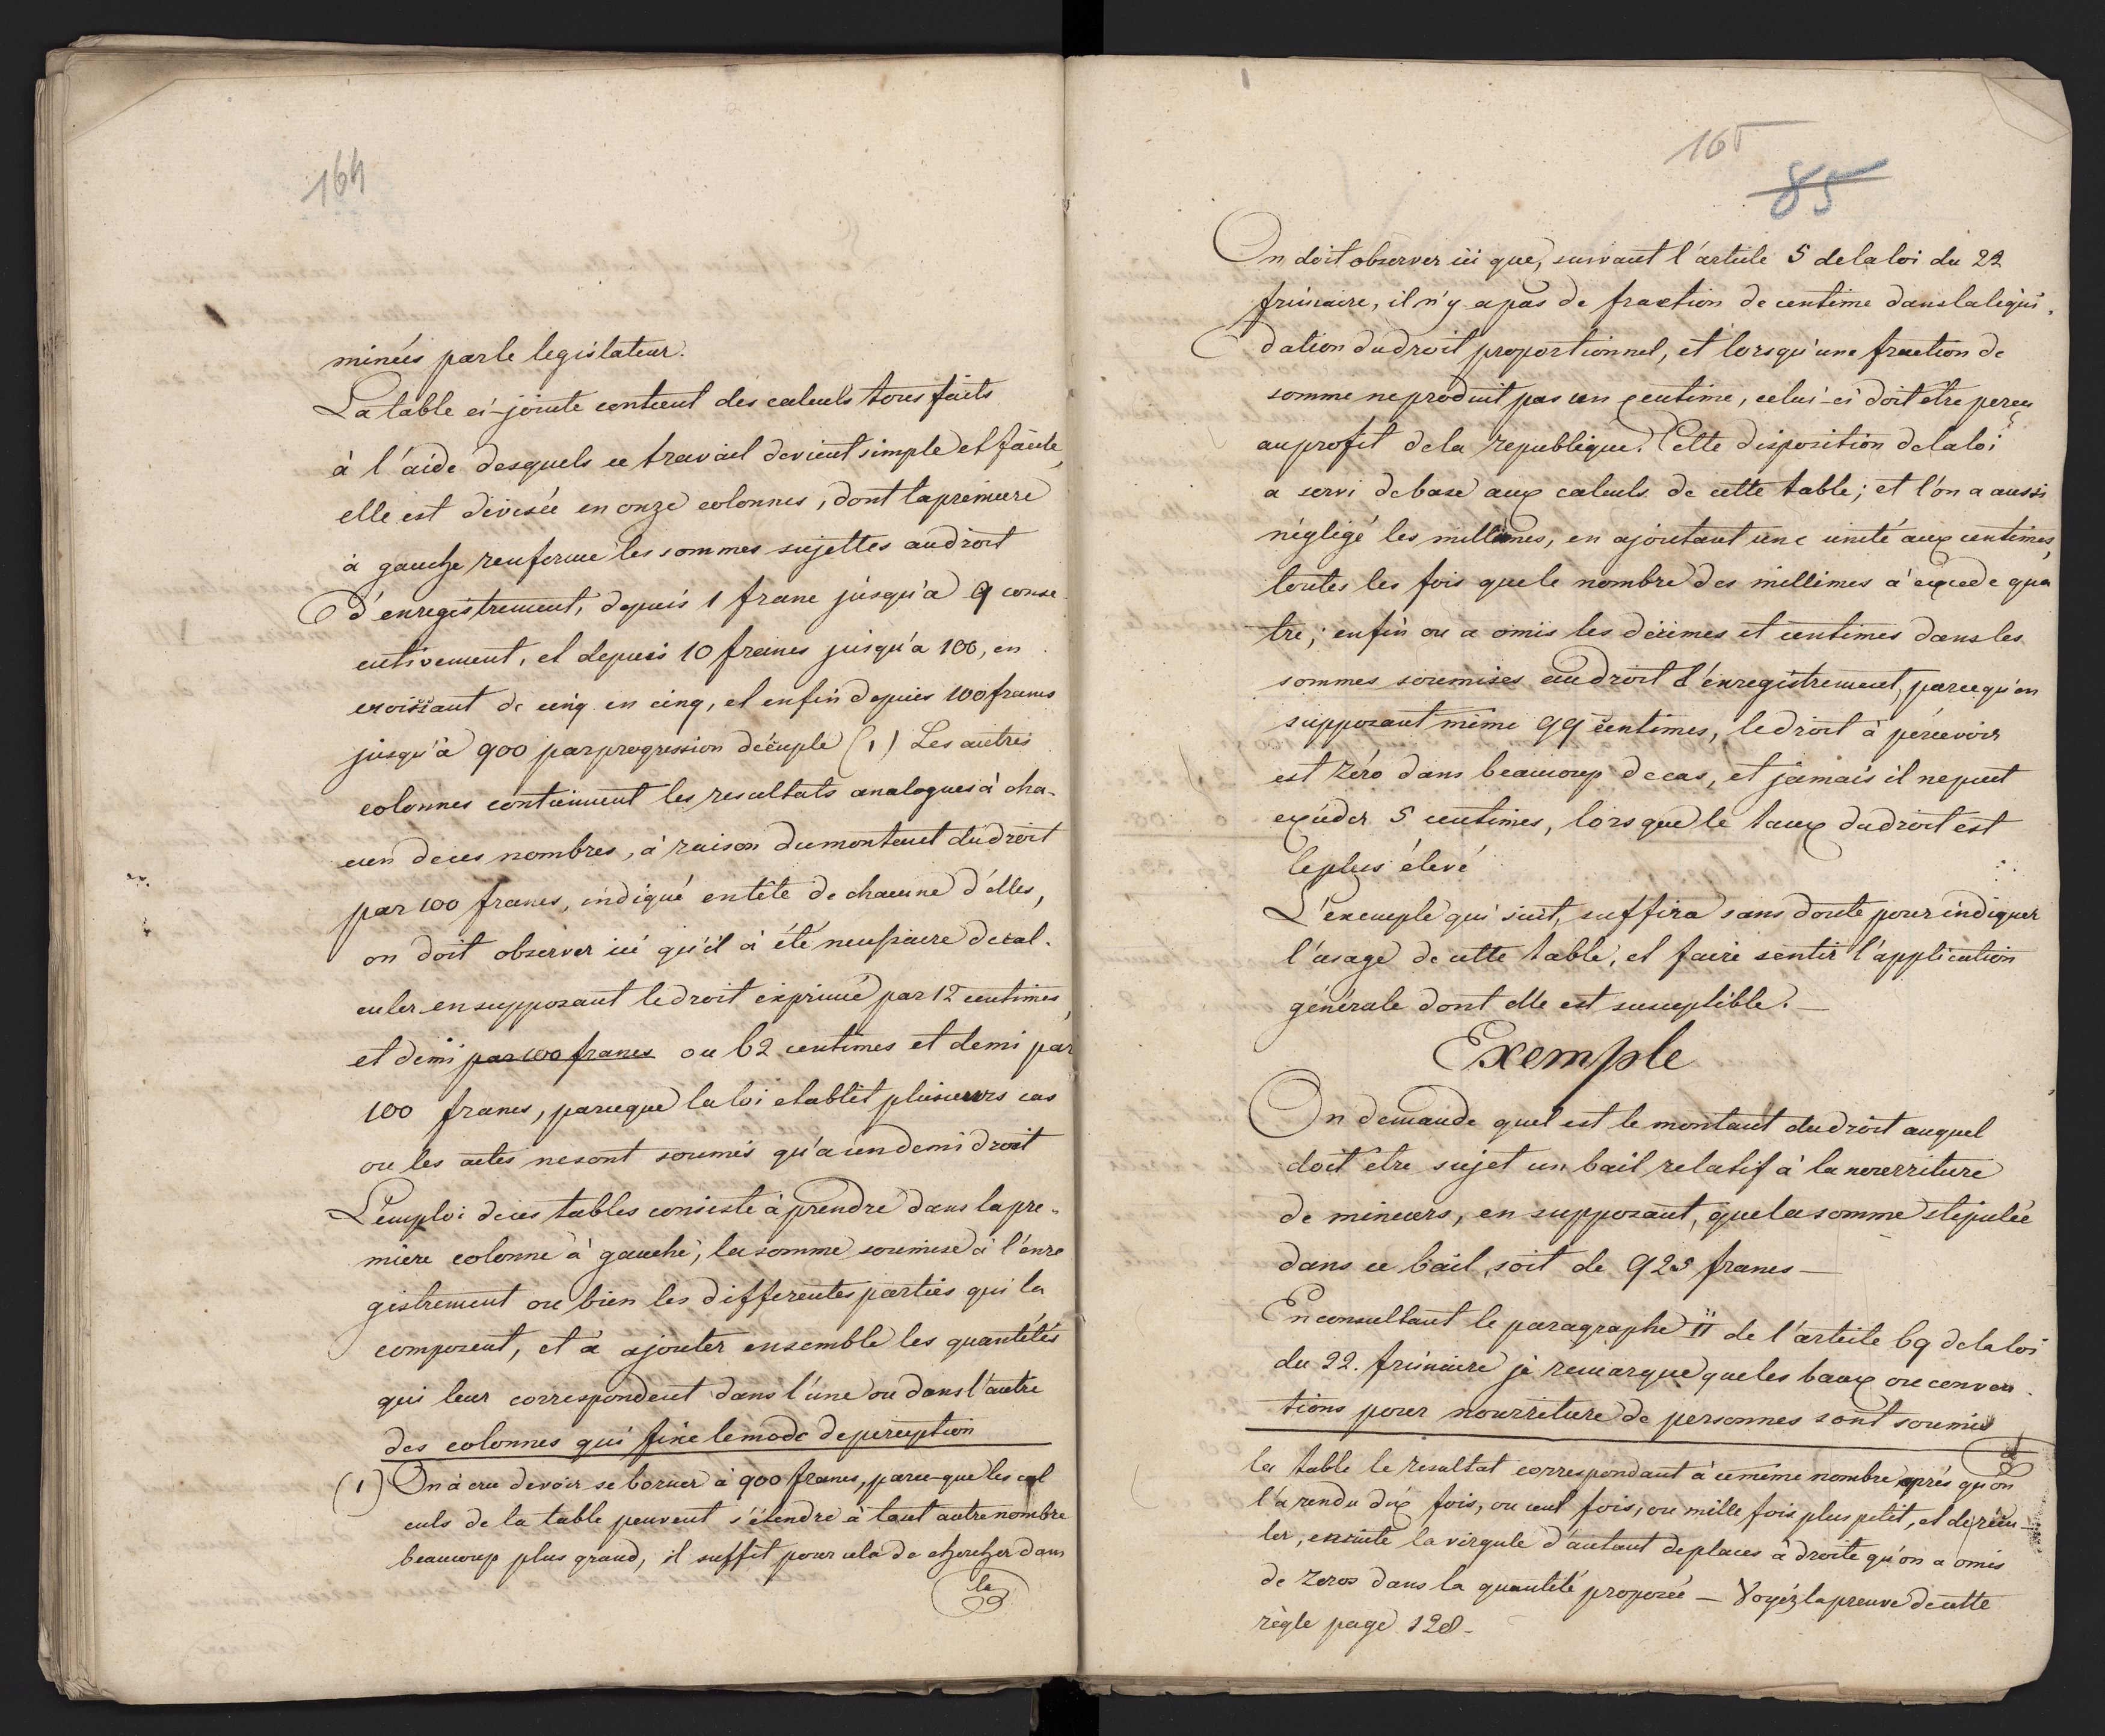 164
minées par le legislateur.
La table ci-jointe contient des calculs tous faits
à l'aide desquels ce travail devient simple et facile,
elle est divisée en onze colonnes, dont la premiere
à gauche renferme les sommes sujettes au droit
d'enregistrement, depuis 1 franc jusqu'à 9 conse
cutivement, et depuis 10 francs jusqu'a 100, en
croissant de cinq en cinq, et enfin depuis 100 francs
jusqu'à 900 par progression décuple (1) Les autres
colonnes contiennent les resultats analogues à cha-
cun de ces nombres, à raison du montant du droit
par 100 francs, indiqué en tête de chacune d'elles,
on doit observer ici qu'il à été necessaire de cal-
culer en supposant le droit exprimé par 12 centimes,
et demi par 100 francs ou 62 centimes et demi par
100 francs, parceque la loi etablit plusieurs cas
ou les actes ne sont soumis qu'a un demi droit
L'emploi de ces tables consiste à prendre dans la pre-
miere colonne à gauche, la somme soumise à l'enre
gistrement ou bien les differentes parties qui la
composent, et à ajouter ensemble les quantités
qui leur correspondent dans l'une ou dans l'autre
des colonnes qui fixe le mode de perception
(1) On à cru devoir se borner à 900 francs, parce-que les cal
culs de la table peuvent s'étendre à tout autre nombre
beaucoup plus grand, il suffit pour cela de chercher dans
la
165
85
On doit observer ici que, suivant l'article 5 de la loi du 22
frimaire, il n'y a pas de fraction de centime dans la liqui-
dation du droit proportionnel, et lorsqu'une fraction de
somme ne produit pas un centime, celui-ci doit être perçu
au profit de la republique. Cette disposition de la loi
a servi de base aux calculs de cette table; et l'on a aussi
négligé les millimes, en ajoutant une unité aux centimes,
toutes les fois que le nombre des millimes à excede qua
tre; enfin on a omis les décimes et centimes dans les
sommes soumises au droit d'enregistrement, parcequ'en
supposant même 99 centimes, le droit à percevoir
est zéro dans beaucoup de cas, et jamais il ne peut
excéder 5 centimes, lorsque le taux du droit est
le plus élevé
L'exemple qui suit, suffira sans doute pour indiquer
l'usage de cette table, et faire sentir l'application
générale dont elle est susceptible. —
Exemple
On demande quel est le montant du droit auquel
doit être sujet un bail relatif à la nourriture
de mineurs, en supposant, que la somme stipulée
dans ce bail, soit de 925 francs —
En consultant le paragraphe II de l'article 69 de la loi
du 22. frimaire je remarque que les baux ou conven-
tions pour nourriture de personnes sont soumis
la table le resultat correspondant à ce même nombre après qu'on
l'a rendu dix fois, ou cent fois, ou mille fois plus petit, et de recu-
ler, ensuite la virgule d'autant de places à droite qu'on a omis
de zeros dans la quantité proposée — Voyéz la preuve de cette
règle page 128 -